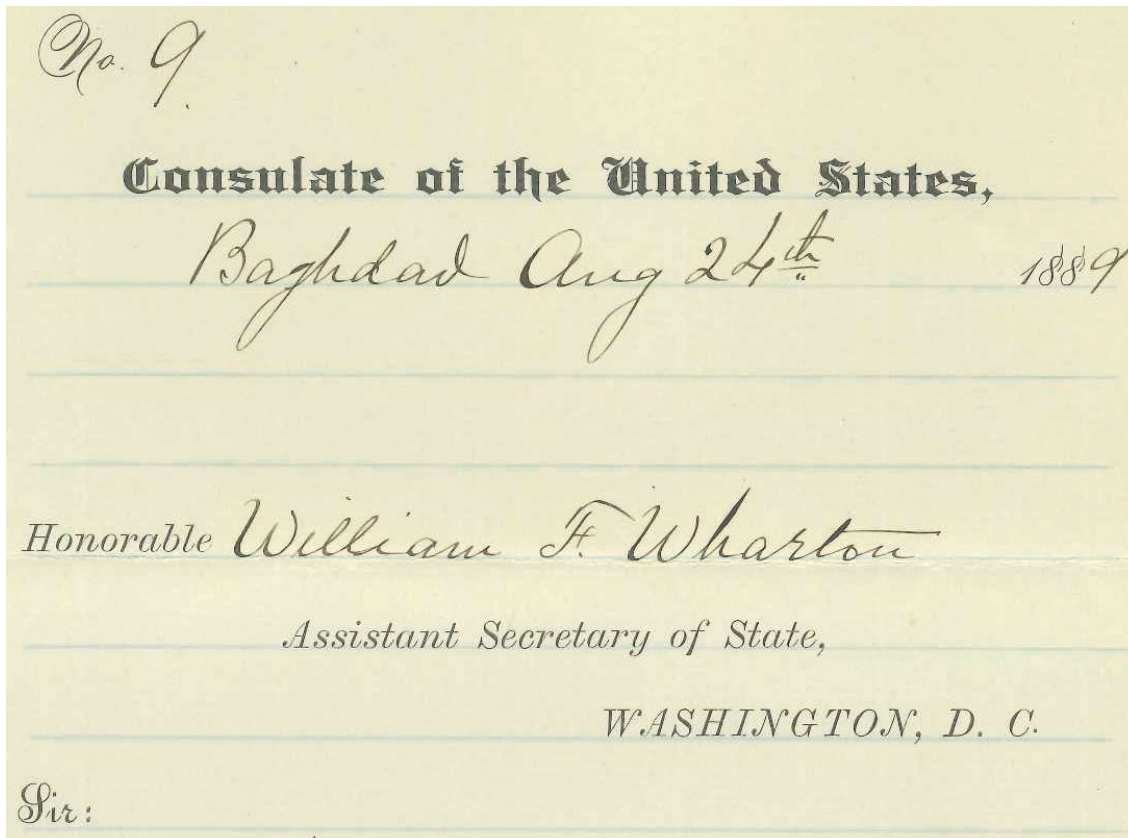 No. 9.
Consulate of the United States,
Baghdad Aug 24th 1889
Honorable William F. Wharton
Assistant Secretary of State,
WASHINGTON, D. C.
Sir: